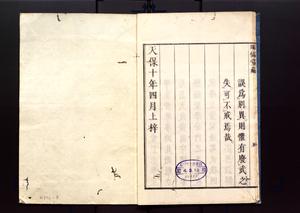 誤爲別異則懼有慶武之
失可不戒焉哉
天保十年四月上梓